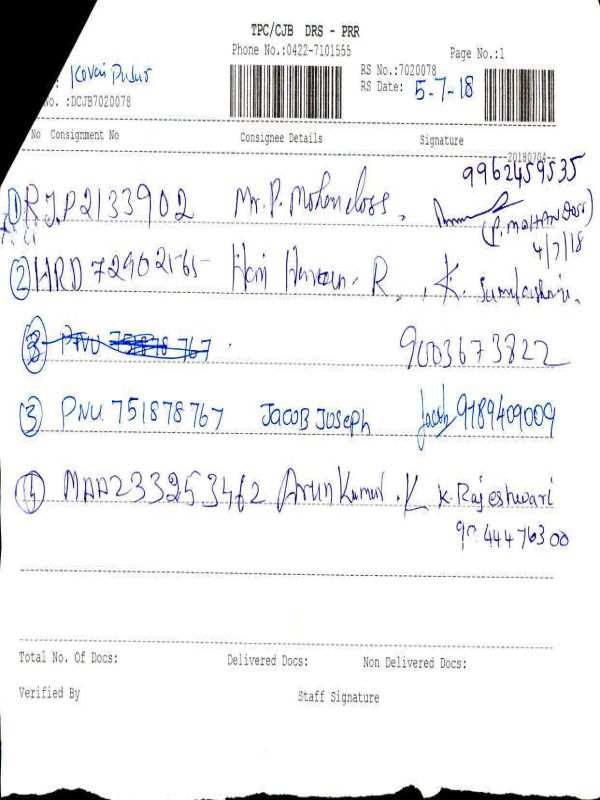 TPC/CJB DRS - PRR
Phone No.:0422-7101555
Page No.:1
: Kovai Pudur
RS No.:7020078
RS Date: 5-7-18
No. :DCJB7020078
No Consignment No Consignee Details Signature
20180704
9962459535
① RJP2133902 Mr. P. Mohandoss,
(P. MOHAN DOSS)
4/7/18
② HRD 72902165 Hari R, K.
9003673822
③ PNU 751878767 JACOB JOSEPH Jacob 9789409009
④ MAA233253462 Arun Kumar. K K. Rajeshwari
44476300
Total No. Of Docs: Delivered Docs: Non Delivered Docs:
Verified By Staff Signature